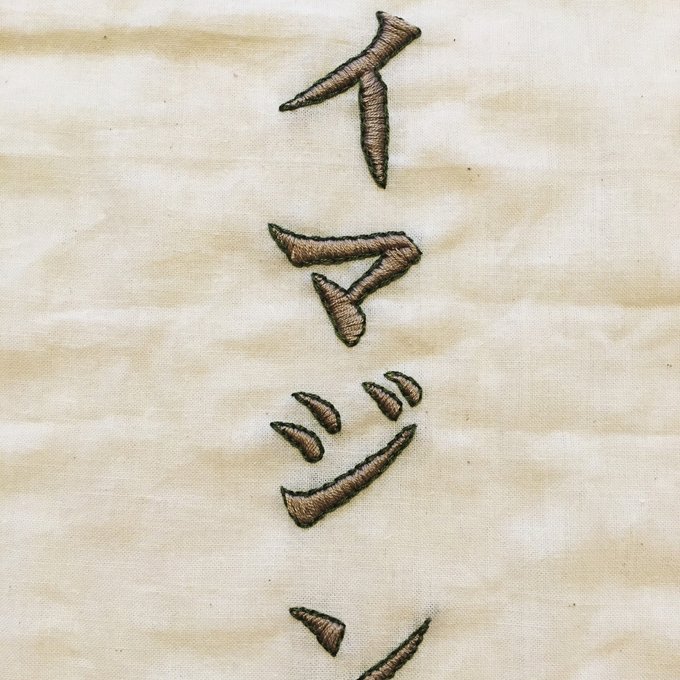 イマジン